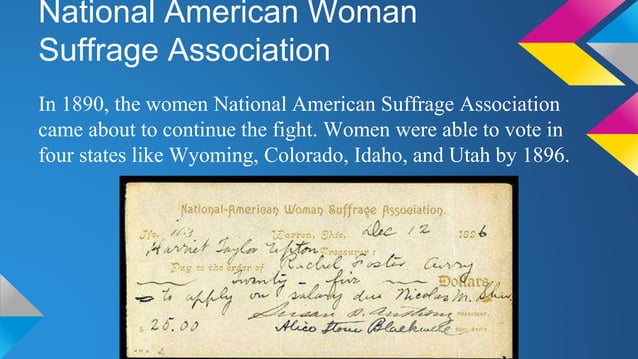 National American Woman
Suffrage Association
In 1890, the women National American Suffrage Association
came about to continue the fight. Women were able to vote in
four states like Wyoming, Colorado, Idaho, and Utah by 1896.
National-American Woman Suffrage Association.
No. Warren, Ohio, Dec 12 1896
Harriet Taylor Upton Treasurer:
Pay to the order of Rachel Foster Avery
Twenty-five Dollars
to apply on salary due Nicolas M. Shaw
Susan B. Anthony PRESIDENT.
$25.00 Alice Stone Blackwell